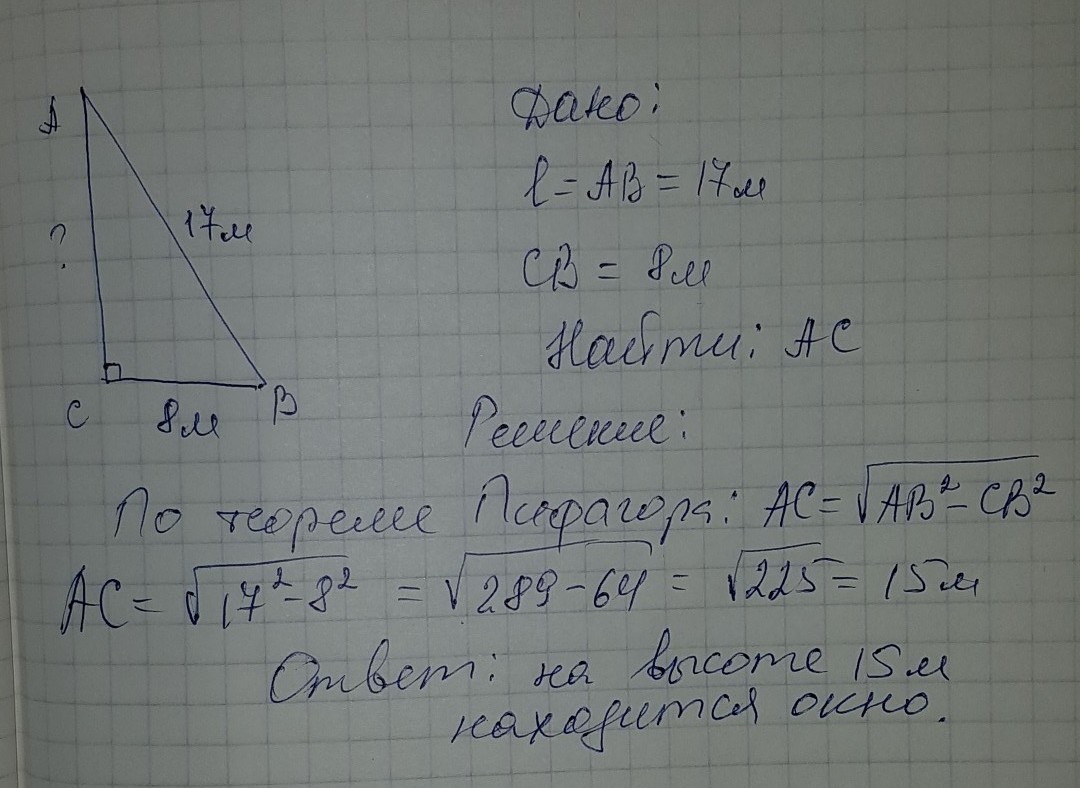 Дано:
A
l = AB = 17м
?
17м
CB = 8м
Найти: AC
C
8м
B
Решение:
По теореме Пифагора: AC = √AB² - CB²
AC = √17² - 8² = √289 - 64 = √225 = 15м
Ответ: на высоте 15м
находится окно.